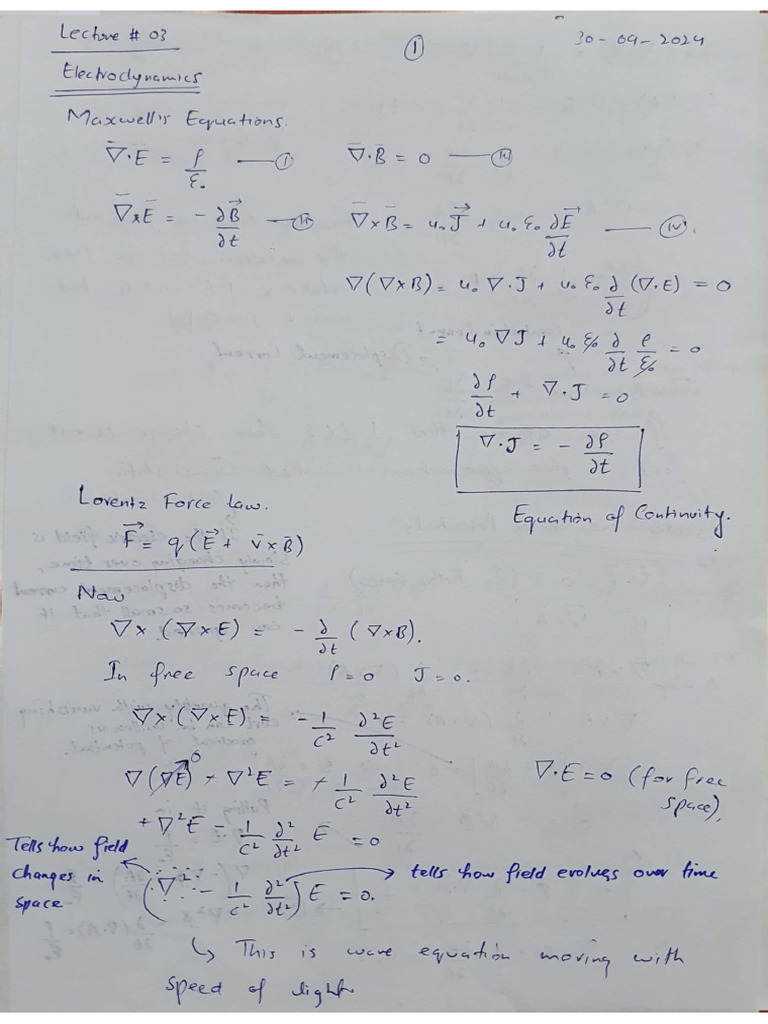 Lecture # 03
①
30-09-2024
Electrodynamics
Maxwell's Equations.
∇̄·Ē = ρ/ε₀ —— (i)
∇̄·B̄ = 0 —— (iii)
∇̄×Ē = - ∂B⃗/∂t —— (ii)
∇̄×B̄ = u₀ J⃗ + u₀ ε₀ ∂E⃗/∂t —— (iv).
∇(∇×B) = u₀ ∇·J + u₀ ε₀ ∂/∂t (∇·E) = 0
= u₀ ∇J + u₀ ε₀ ∂/∂t ρ/ε₀ = 0
∂ρ/∂t + ∇·J = 0
∇·J = - ∂ρ/∂t
Equation of Continuity.
Lorentz Force law.
F⃗ = q (E⃗ + v̄×B̄)
Now
∇× (∇×E) = - ∂/∂t (∇×B).
In free space ρ=0 J=0.
∇×(∇×E) = - 1/c² ∂²E/∂t²
∇(∇E)→0 + ∇²E = + 1/c² ∂²E/∂t²
∇·E=0 (for free space),
+ ∇²E - 1/c² ∂²/∂t² E = 0
Tells how field changes in space
(∇² - 1/c² ∂²/∂t²) E = 0.
tells how field evolves over time
↳ This is wave equation moving with
speed of light